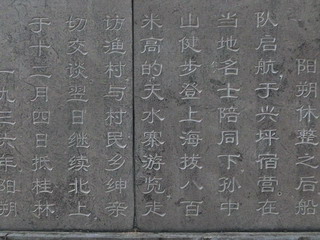 阳朔休整之后船
队启航于兴坪宿营在
当地名士陪同下孙中
山健步登上海拔八百
米高的天水寨游览走
访渔村与村民乡绅亲
切交谈翌日继续北上
于十二月四日抵桂林
一九三六年阳朔